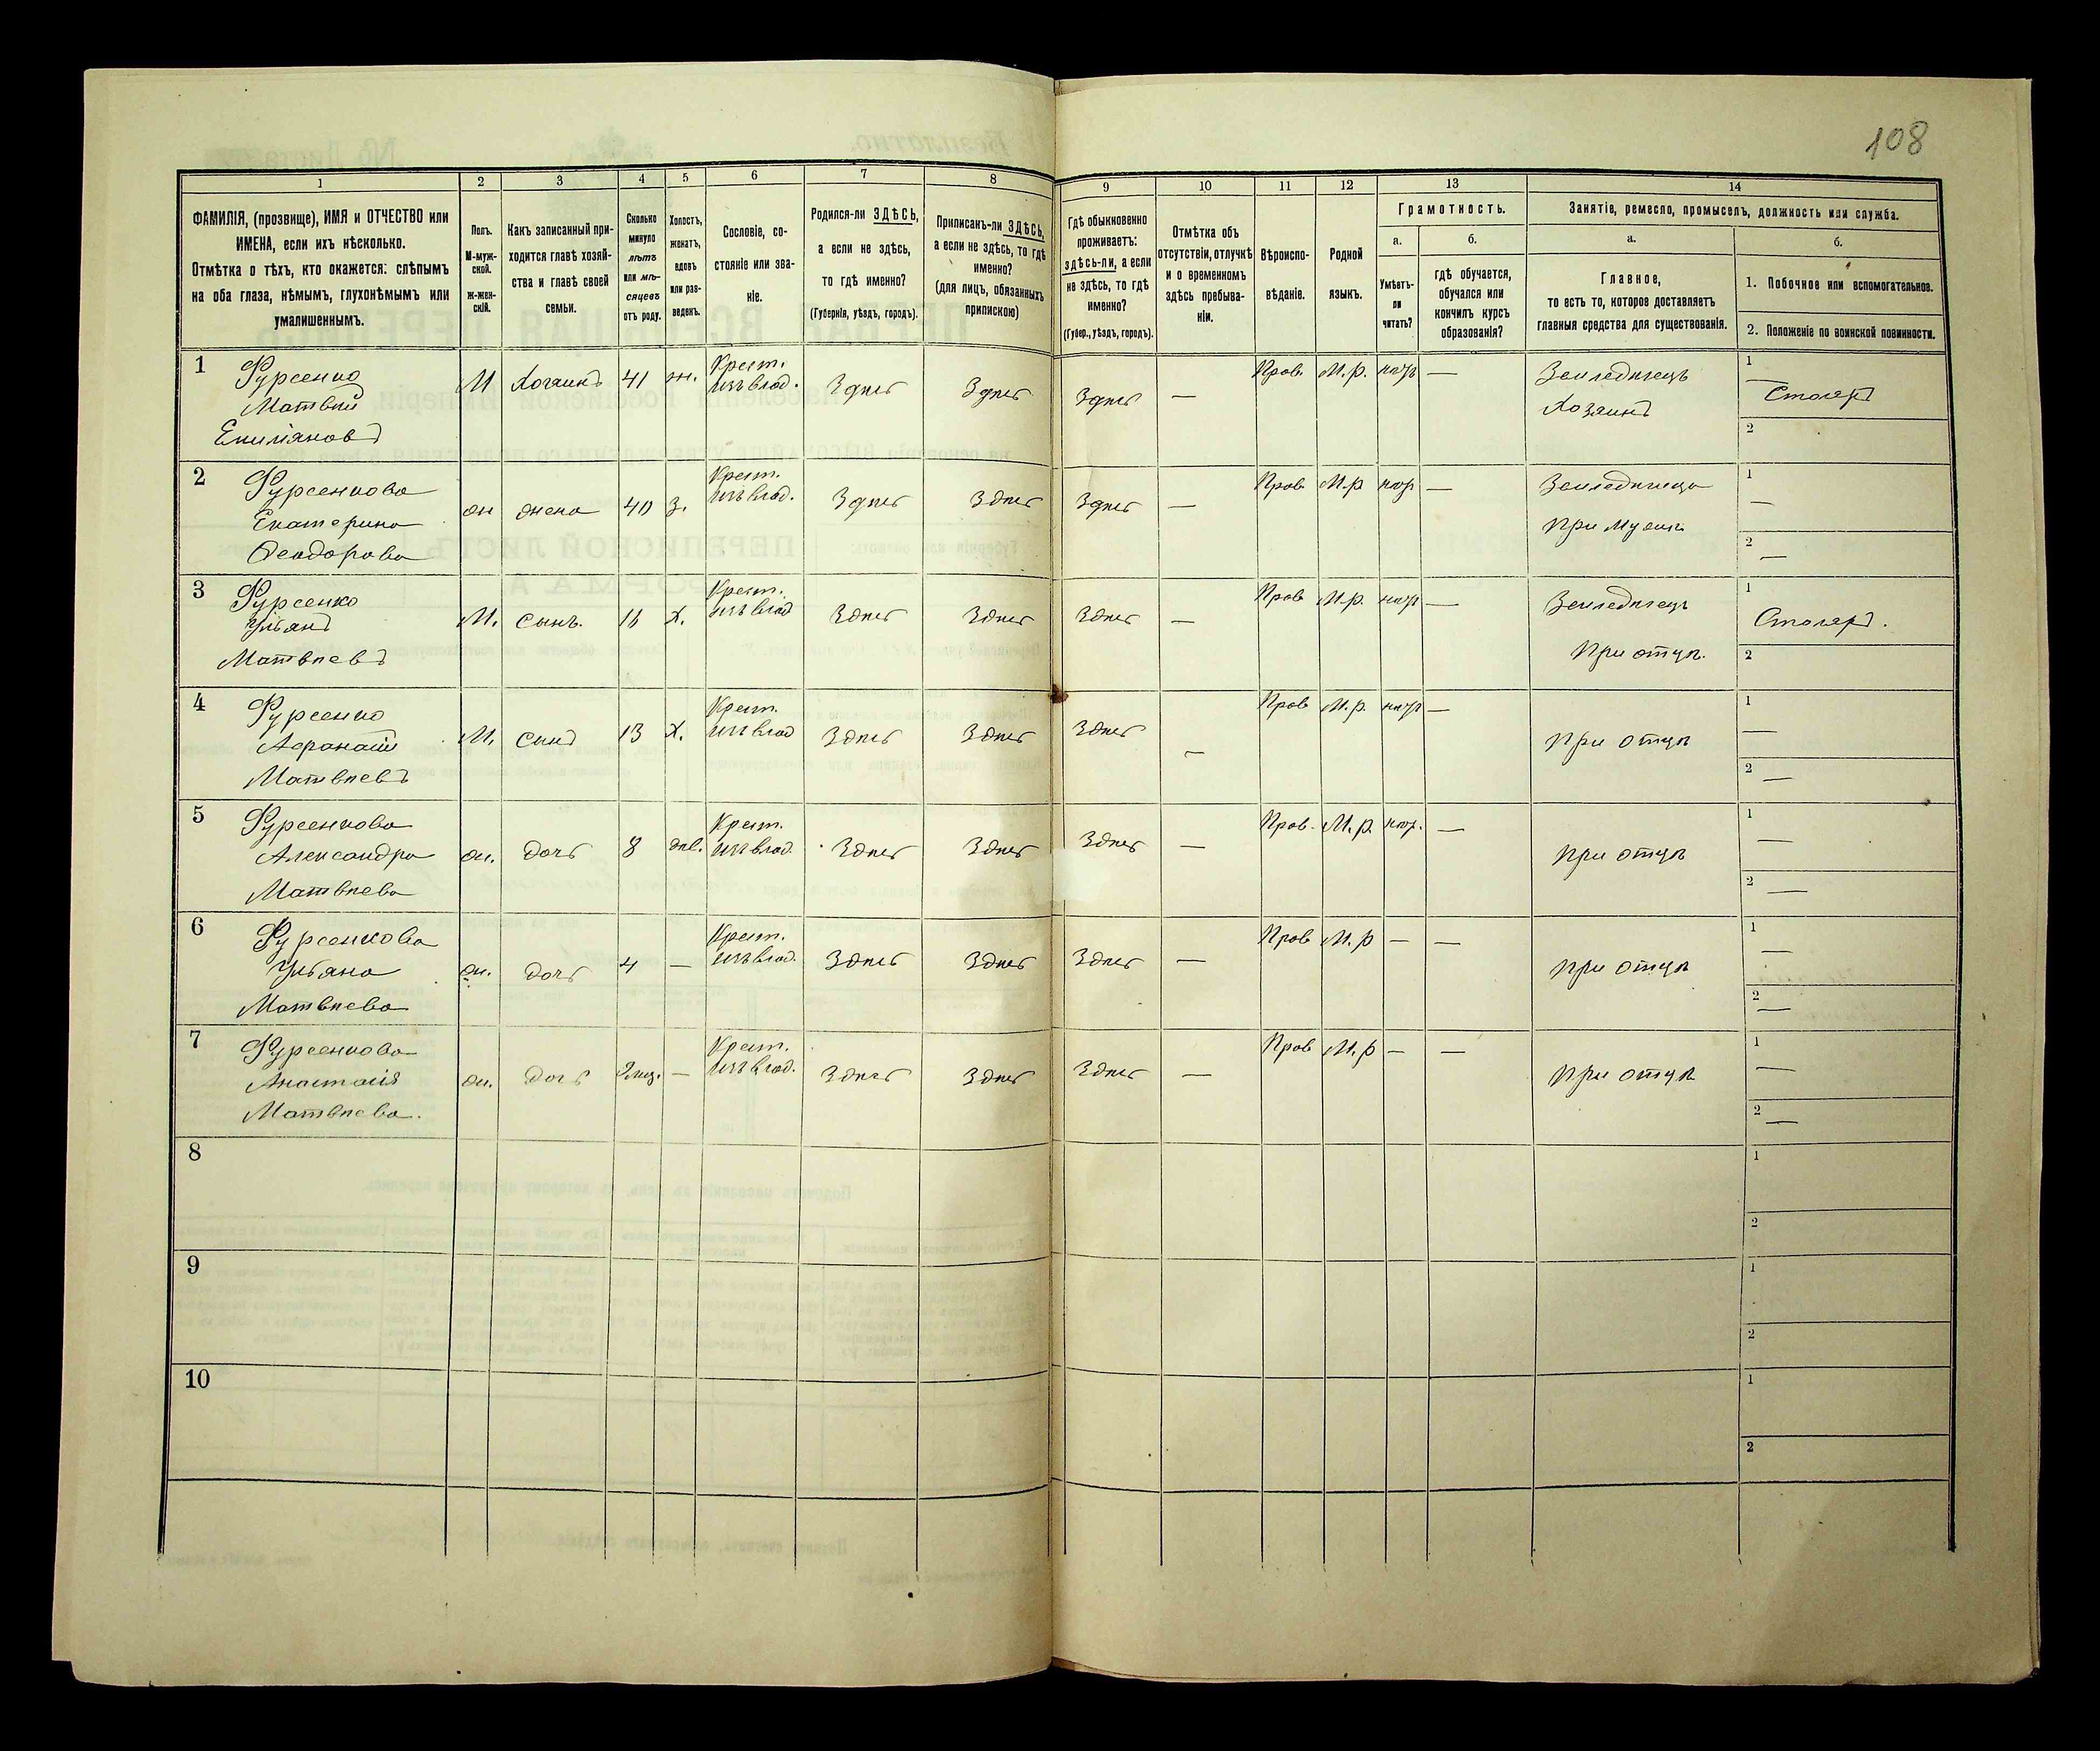 108
1
2
3
4
5
6
7
8
9
10
11
12
13
14
ФАМИЛІЯ, (прозвище), ИМЯ и ОТЧЕСТВО или
ИМЕНА, если ихъ нѣсколько.
Отмѣтка о тѣхъ, кто окажется: слѣпымъ
на оба глаза, нѣмымъ, глухонѣмымъ или
умалишеннымъ.
Полъ.
М-муж-
ской.
Ж-жен-
скій.
Какъ записанный при-
ходится главѣ хозяй-
ства и главѣ своей
семьи.
Сколько
минуло
лѣтъ
или мѣ-
сяцевъ
отъ роду.
Холостъ,
женатъ,
вдовъ
или раз-
веденъ.
Сословіе, со-
стояніе или зва-
ніе.
Родился-ли ЗДѢСЬ,
а если не здѣсь,
то гдѣ именно?
(Губернія, уѣздъ, городъ).
Приписанъ-ли ЗДѢСЬ,
а если не здѣсь, то гдѣ
именно?
(для лицъ, обязанныхъ
припискою)
Гдѣ обыкновенно
проживаетъ:
здѣсь-ли, а если
не здѣсь, то гдѣ
именно?
(Губер., уѣздъ, городъ).
Отмѣтка объ
отсутствіи, отлучкѣ
и о временномъ
здѣсь пребыва-
ніи.
Вѣроиспо-
вѣданіе.
Родной
языкъ.
Грамотность.
а.
Умѣетъ-
ли
читать?
б.
гдѣ обучается,
обучался или
кончилъ курсъ
образованія?
Занятіе, ремесло, промыселъ, должность или служба.
а.
Главное,
то есть то, которое доставляетъ
главныя средства для существованія.
б.
1. Побочное или вспомогательное.
2. Положеніе по воинской повинности.
1
Фурсенко
Матвѣй
Емиліановъ
М
Хозяинъ
41
ж.
Крест.
изъ влад.
Здѣсь
Здѣсь
Здѣсь
—
Прав.
М.р.
—
Земледѣлецъ
Хозяинъ
1
—
Столяръ
2
2
Фурсенкова
Екатерина
Ѳеодорова
ж
жена
40
з.
Крест.
изъ влад.
Здѣсь
Здѣсь
Здѣсь
—
Прав
М.р
—
Земледѣлица
при мужѣ
1
—
2
—
3
Фурсенко
Ульянъ
Матвѣевъ
М.
сынъ.
Х.
Крест.
изъ влад
Здѣсь
Здѣсь
Здѣсь
—
Прав
М.р.
—
Земледѣлецъ
При отцѣ.
1
Столяръ.
2
4
Фурсенко
Афанасій
Матвѣевъ
М.
сынъ
13
Х.
Крест.
изъ влад
Здѣсь
Здѣсь
Здѣсь
—
Прав
М.р.
—
при отцѣ
1
—
2
—
5
Фурсенкова
Александра
Матвѣева
ж.
дочь
8
дѣв.
Крест.
изъ влад.
Здѣсь
Здѣсь
Здѣсь
—
Прав.
М.р.
—
при отцѣ
1
—
2
—
6
Фурсенкова
Ульяна
Матвѣева
ж.
дочь
4
—
Крест.
изъ влад.
Здѣсь
Здѣсь
Здѣсь
—
Прав
М.р
—
—
при отцѣ
1
—
2
—
7
Фурсенкова
Анастасія
Матвѣева.
ж.
дочь
—
Крест.
изъ влад.
Здѣсь
Здѣсь
Здѣсь
—
Прав
М.р
—
—
при отцѣ
1
—
2
—
8
1
2
9
1
2
10
1
2